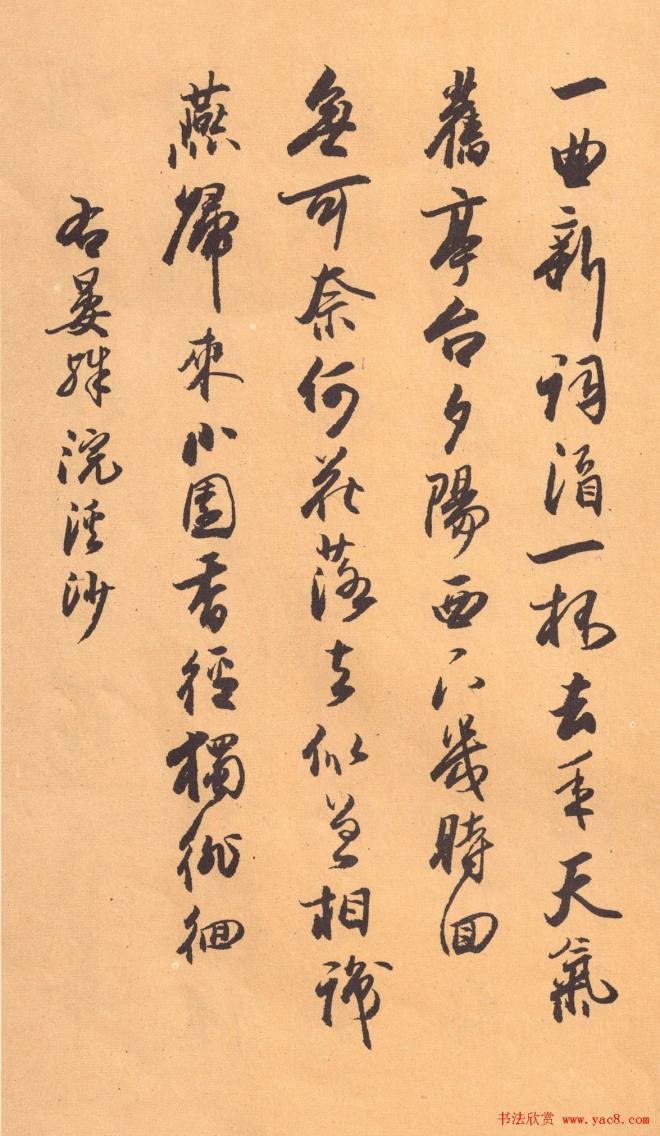 一曲新词酒一杯去年天氣
舊亭台夕陽西下幾時回
無可奈何花落去似曾相識
燕歸來小園香徑獨徘徊
右晏殊浣溪沙
书法欣赏 www.yac8.com